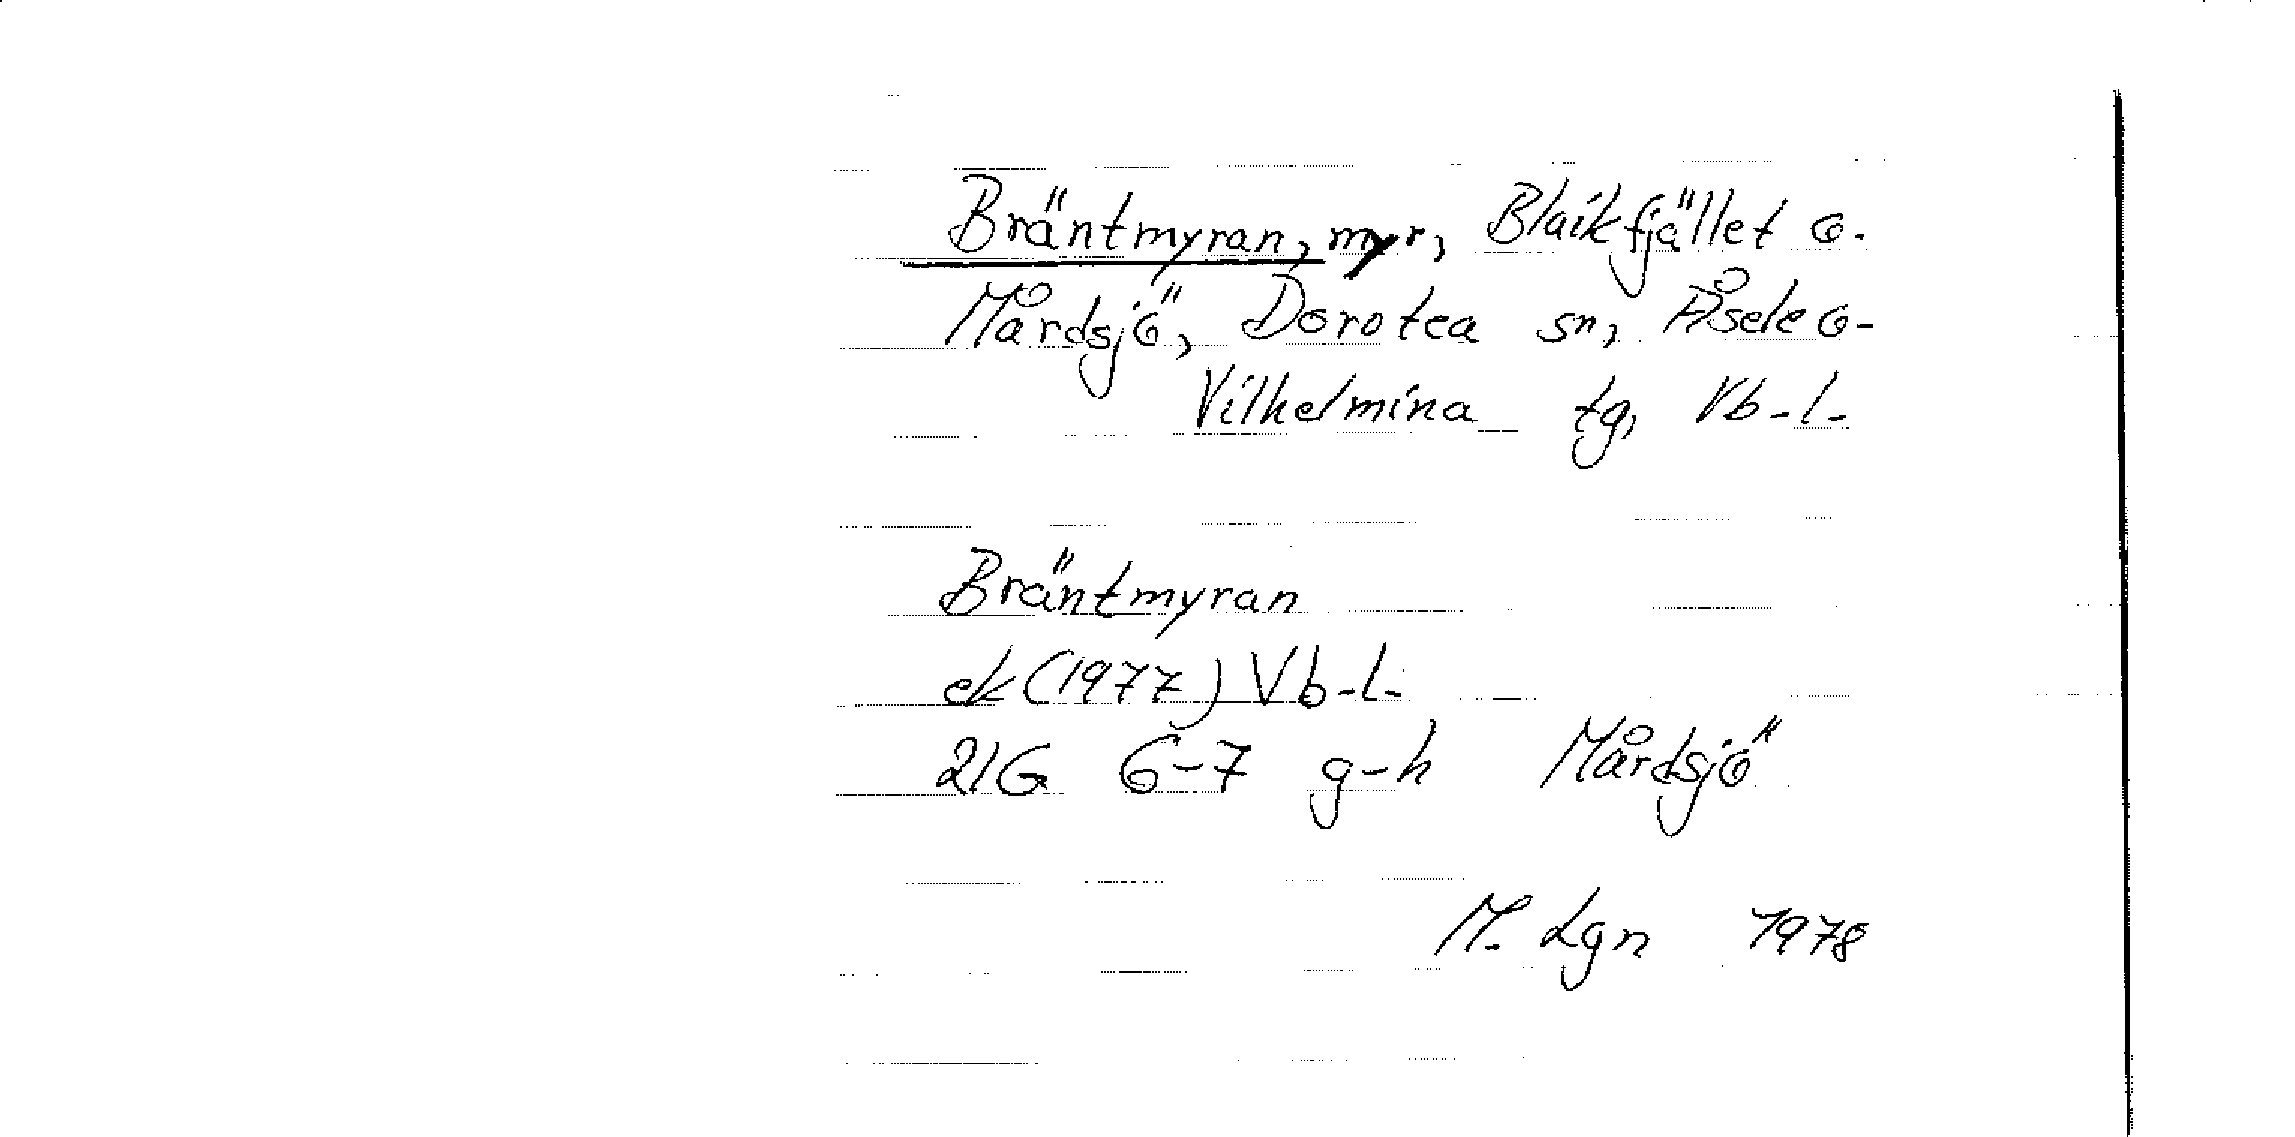 Bräntmyran, myr, Blaikfjället o.
Mårdsjö, Dorotea sn, Åsele o-
Vilhelmina tg, Vb-l-
Bräntmyran
ek (1977) Vb-l-
21G 6-7 g-h Mårdsjö
M. Lgn 1978